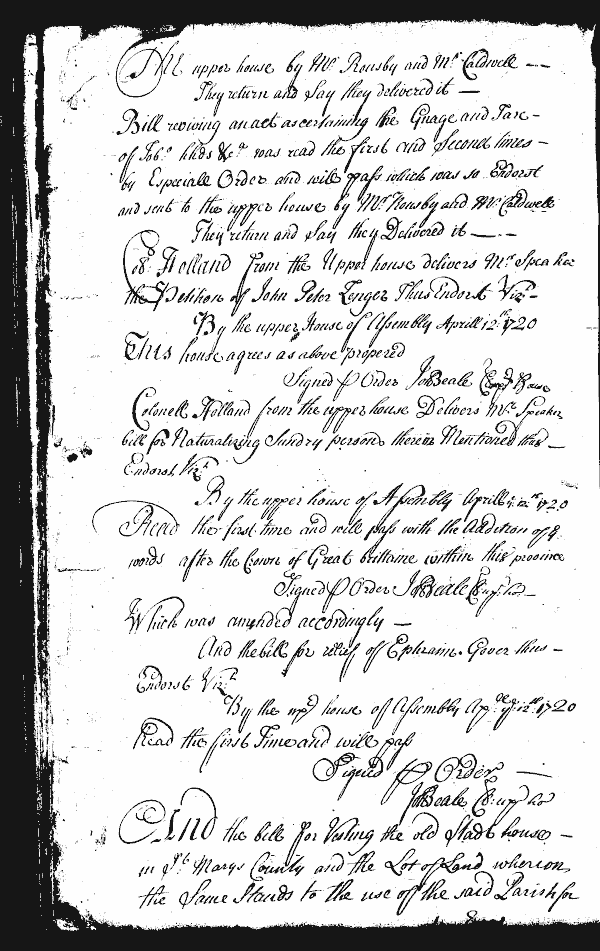 The upper house by Mr. Rousby and Mr. Caldwell
They return and Say they delivered it
Bill reviving an act ascertaining the Guage and Tare
of Tobo. hhds &ca. was read the first and Second times
by Especiall Order and will pass which was so Endorst
and sent to the upper house by Mr. Rousby and Mr. Caldwell
They return and Say they Delivered it
Col: Holland from the Upper house delivers Mr. Speaker
the Petition of John Peter Zenger Thus Endorst Vizt
By the upper House of Assembly Aprill 12th 1720
This house agrees as above propered
Signed p Order Jo Beale
Colonell Holland from the upper house Delivers Mr. Speaker
bill for Naturalizing Sundry persons therein Mentioned thus
Endorst Vizt.
By the upper house of Assembly Aprill ye 12th 1720
Read the first time and will pass with the Addition of ye
words after the Crown of Great brittaine within this province
Signed p Order Jo Beale Cl: up: ho
Which was amended accordingly
And the bill for relief of Ephraim Gover thus
Endorst Vizt
By the upr house of Assembly Ap: ye 12th 1720
Read the first Time and will pass
Signed p Order
Jo Beale Cl: up ho
And the bill for Vesting the old Stadt house
in St. Marys County and the Lot of Land whereon
the Same Stands to the use of the said Parish for